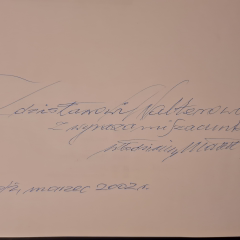 Zdzisławowi Walterowi
z wyrazami szacunku
Włodzimierz
marzec 2002 r.